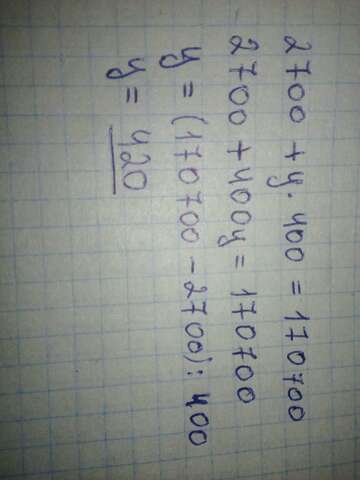 2700 + y · 400 = 170700
2700 + 400y = 170700
y = (170700 - 2700) : 400
y = 420